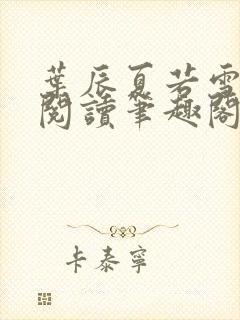 葉辰夏若雪
閱讀筆趣閣
卡泰寧